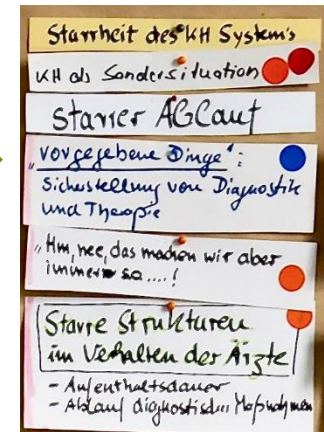 Starrheit des KH Systems
KH als Sondersituation
Starrer Ablauf
"vorgegebene Dinge":
Sicherstellung von Diagnostik
und Therapie
"Hm, nee, das machen wir aber
immer so ....!
Starre Strukturen
im Verhalten der Ärzte
- Aufenthaltsdauer
- Ablauf diagnostischer Maßnahmen